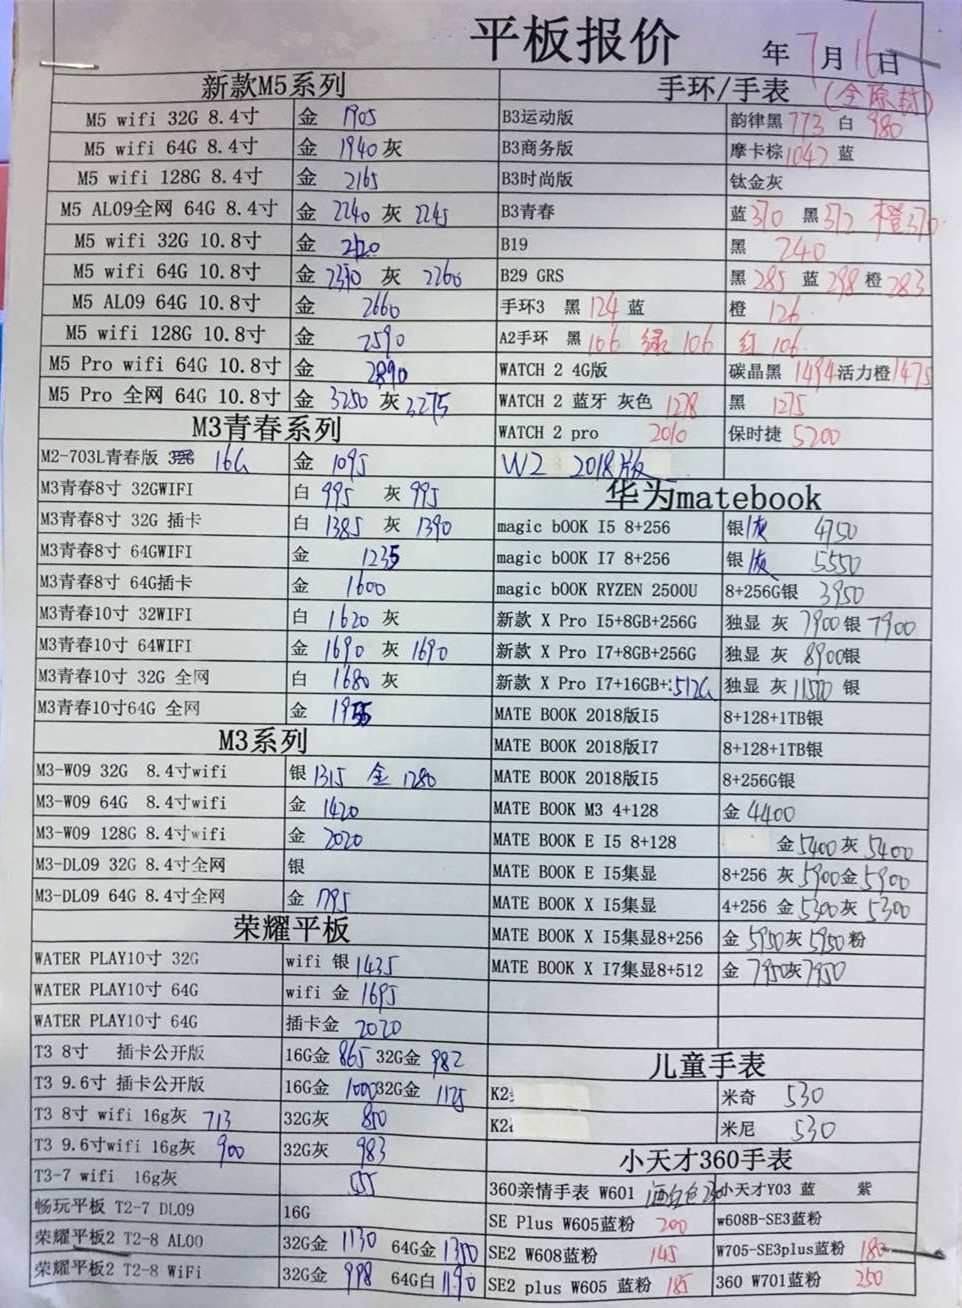 平板报价
年 7月16日
新款M5系列
M5 wifi 32G 8.4寸 金 1905
M5 wifi 64G 8.4寸 金 1940 灰
M5 wifi 128G 8.4寸 金 2165
M5 AL09全网 64G 8.4寸 金 2240 灰 2245
M5 wifi 32G 10.8寸 金 2120
M5 wifi 64G 10.8寸 金 灰 2260
M5 AL09 64G 10.8寸 金 2660
M5 wifi 128G 10.8寸 金 2590
M5 Pro wifi 64G 10.8寸 金 2890
M5 Pro 全网 64G 10.8寸 金 3250 灰 3275
M3青春系列
M2-703L青春版 16G 金 1095
M3青春8寸 32GWIFI 白 995 灰 995
M3青春8寸 32G 插卡 白 1385 灰 1390
M3青春8寸 64GWIFI 金 1235
M3青春8寸 64G插卡 金 1600
M3青春10寸 32WIFI 白 1620 灰
M3青春10寸 64WIFI 金 1690 灰 1690
M3青春10寸 32G 全网 白 1680 灰
M3青春10寸64G 全网 金
M3系列
M3-W09 32G 8.4寸wifi 银 1315 金 1280
M3-W09 64G 8.4寸wifi 金 1420
M3-W09 128G 8.4寸wifi 金 2020
M3-DL09 32G 8.4寸全网 银
M3-DL09 64G 8.4寸全网 金 1795
荣耀平板
WATER PLAY10寸 32G wifi 银 1435
WATER PLAY10寸 64G wifi 金 1695
WATER PLAY10寸 64G 插卡金 2020
T3 8寸 插卡公开版 16G金 865 32G金 982
T3 9.6寸 插卡公开版 16G金 1000 32G金 1175
T3 8寸 wifi 16g灰 713 32G灰 850
T3 9.6寸wifi 16g灰 900 32G灰 983
T3-7 wifi 16g灰 555
畅玩平板 T2-7 DL09 16G
荣耀平板2 T2-8 AL00 32G金 1130 64G金 1350
荣耀平板2 T2-8 WiFi 32G金 998 64G白 1190
手环/手表 (全原封)
B3运动版 韵律黑 773 白 980
B3商务版 摩卡棕 1047 蓝
B3时尚版 钛金灰
B3青春 蓝 370 黑 372 橙 370
B19 黑 240
B29 GRS 黑 285 蓝 298 橙 283
手环3 黑 124 蓝 橙 126
A2手环 黑 106 绿 106 红 106
WATCH 2 4G版 碳晶黑 1494 活力橙 1475
WATCH 2 蓝牙 灰色 1278 黑 1275
WATCH 2 pro 2010 保时捷 5200
W2 2018版
华为matebook
magic bOOK I5 8+256 银/灰 4750
magic bOOK I7 8+256 银/灰 5550
magic bOOK RYZEN 2500U 8+256G银 3950
新款 X Pro I5+8GB+256G 独显 灰 7900 银 7900
新款 X Pro I7+8GB+256G 独显 灰 8900 银
新款 X Pro I7+16GB+512G 独显 灰 11500 银
MATE BOOK 2018版I5 8+128+1TB银
MATE BOOK 2018版I7 8+128+1TB银
MATE BOOK 2018版I5 8+256G银
MATE BOOK M3 4+128 金 4400
MATE BOOK E I5 8+128 金 5400 灰 5400
MATE BOOK E I5集显 8+256 灰 5900 金 5900
MATE BOOK X I5集显 4+256 金 5300 灰 5300
MATE BOOK X I5集显8+256 金 5950 灰 5950 粉
MATE BOOK X I7集显8+512 金 7950 灰 7950
儿童手表
K2 米奇 530
K2 米尼 530
小天才360手表
360亲情手表 W601 小天才Y03 蓝 紫
SE Plus W605蓝粉 200 w608B-SE3蓝粉
SE2 W608蓝粉 145 W705-SE3plus蓝粉 180
SE2 plus W605 蓝粉 185 360 W701蓝粉 250